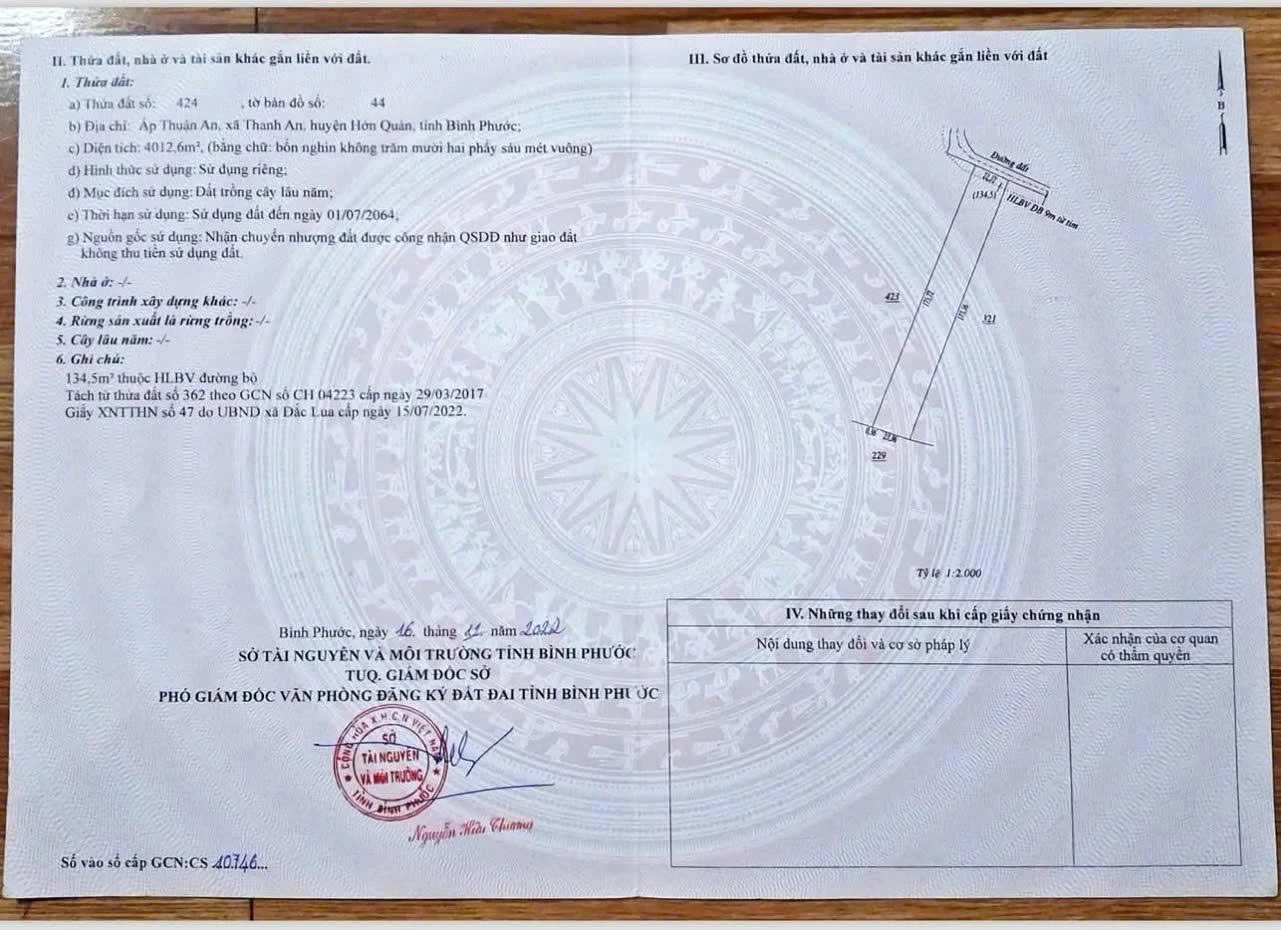 II. Thửa đất, nhà ở và tài sản khác gắn liền với đất.
1. Thửa đất:
a) Thửa đất số: 424 , tờ bản đồ số: 44
b) Địa chỉ: Ấp Thuận An, xã Thanh An, huyện Hớn Quản, tỉnh Bình Phước;
c) Diện tích: 4012,6m², (bằng chữ: bốn nghìn không trăm mười hai phẩy sáu mét vuông)
d) Hình thức sử dụng: Sử dụng riêng;
đ) Mục đích sử dụng: Đất trồng cây lâu năm;
e) Thời hạn sử dụng: Sử dụng đất đến ngày 01/07/2064;
g) Nguồn gốc sử dụng: Nhận chuyển nhượng đất được công nhận QSDĐ như giao đất
không thu tiền sử dụng đất.
2. Nhà ở: -/-
3. Công trình xây dựng khác: -/-
4. Rừng sản xuất là rừng trồng: -/-
5. Cây lâu năm: -/-
6. Ghi chú:
134,5m² thuộc HLBV đường bộ
Tách từ thửa đất số 362 theo GCN số CH 04223 cấp ngày 29/03/2017
Giấy XNTTHN số 47 do UBND xã Đắc Lua cấp ngày 15/07/2022.
Bình Phước, ngày 16. tháng 12. năm 2022
SỞ TÀI NGUYÊN VÀ MÔI TRƯỜNG TỈNH BÌNH PHƯỚC
TUQ. GIÁM ĐỐC SỞ
PHÓ GIÁM ĐỐC VĂN PHÒNG ĐĂNG KÝ ĐẤT ĐAI TỈNH BÌNH PHƯỚC
CỘNG HÒA X.H.C.N VIỆT NAM
SỞ
TÀI NGUYÊN
VÀ MÔI TRƯỜNG
TỈNH BÌNH PHƯỚC
Nguyễn Hữu Chương
Số vào sổ cấp GCN:CS 10746...
III. Sơ đồ thửa đất, nhà ở và tài sản khác gắn liền với đất
B
Đường đất
(134.5)
HLBV ĐB 9m từ tim
423
173,72
171,16
321
229
Tỷ lệ 1:2.000
IV. Những thay đổi sau khi cấp giấy chứng nhận
Nội dung thay đổi và cơ sở pháp lý
Xác nhận của cơ quan
có thẩm quyền